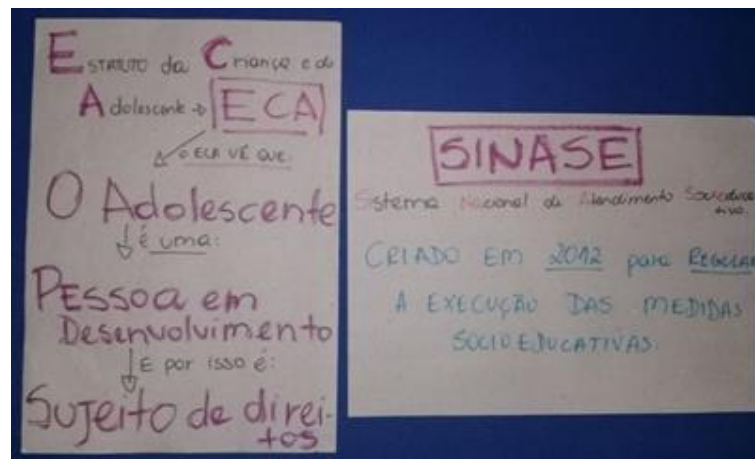 ESTATUTO da Criança e do
Adolescente → ECA
O ECA VÊ QUE:
O Adolescente
é uma:
PESSOA em
Desenvolvimento
E por isso é:
Sujeito de direi-
tos
SINASE
Sistema Nacional de Atendimento Socioeduca
tivo.
CRIADO EM 2012 para REGULAR
A EXECUÇÃO DAS MEDIDAS
SOCIOEDUCATIVAS.